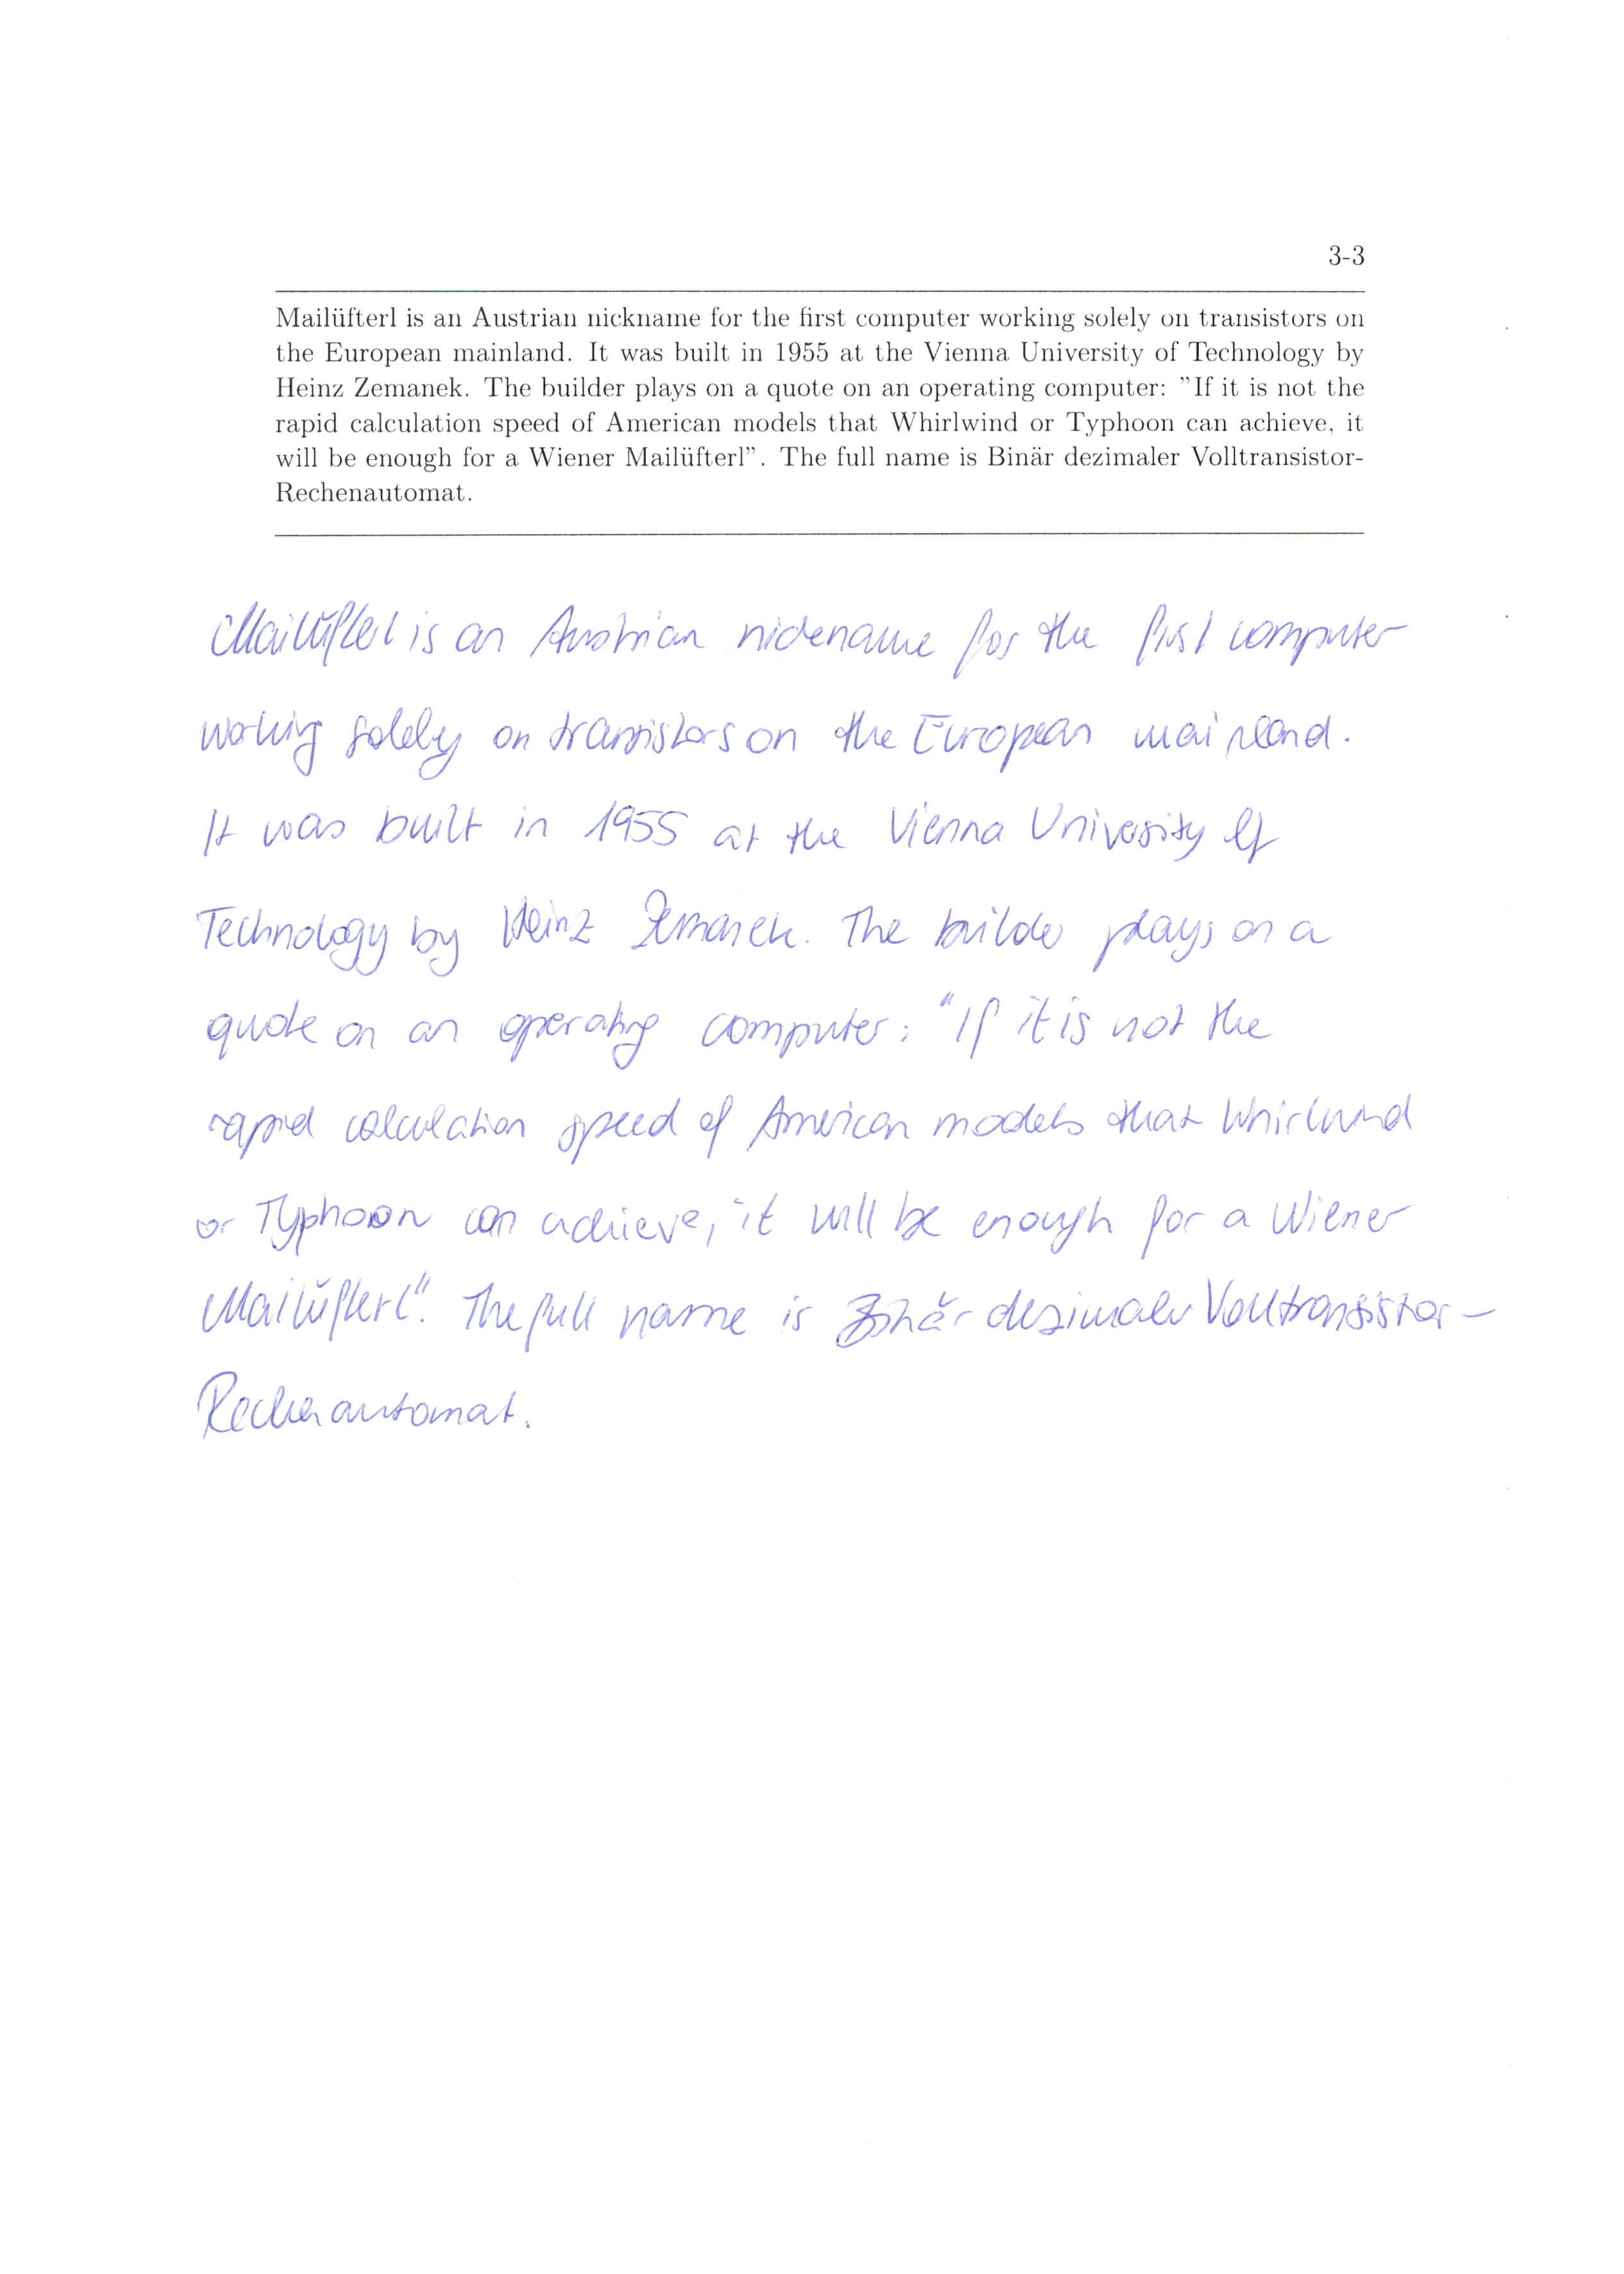 3-3
Mailüfterl is an Austrian nickname for the first computer working solely on transistors on
the European mainland. It was built in 1955 at the Vienna University of Technology by
Heinz Zemanek. The builder plays on a quote on an operating computer: "If it is not the
rapid calculation speed of American models that Whirlwind or Typhoon can achieve, it
will be enough for a Wiener Mailüfterl". The full name is Binär dezimaler Volltransistor-
Rechenautomat.
Mailüfterl is an Austrian nickname for the first computer
working solely on transistors on the European mainland.
It was built in 1955 at the Vienna University of
Technology by Heinz Zemanek. The builder plays on a
quote on an operating computer: "If it is not the
rapid calculation speed of American models that Whirlwind
or Typhoon can achieve, it will be enough for a Wiener
Mailüfterl". The full name is Binär dezimaler Volltransistor-
Rechenautomat.